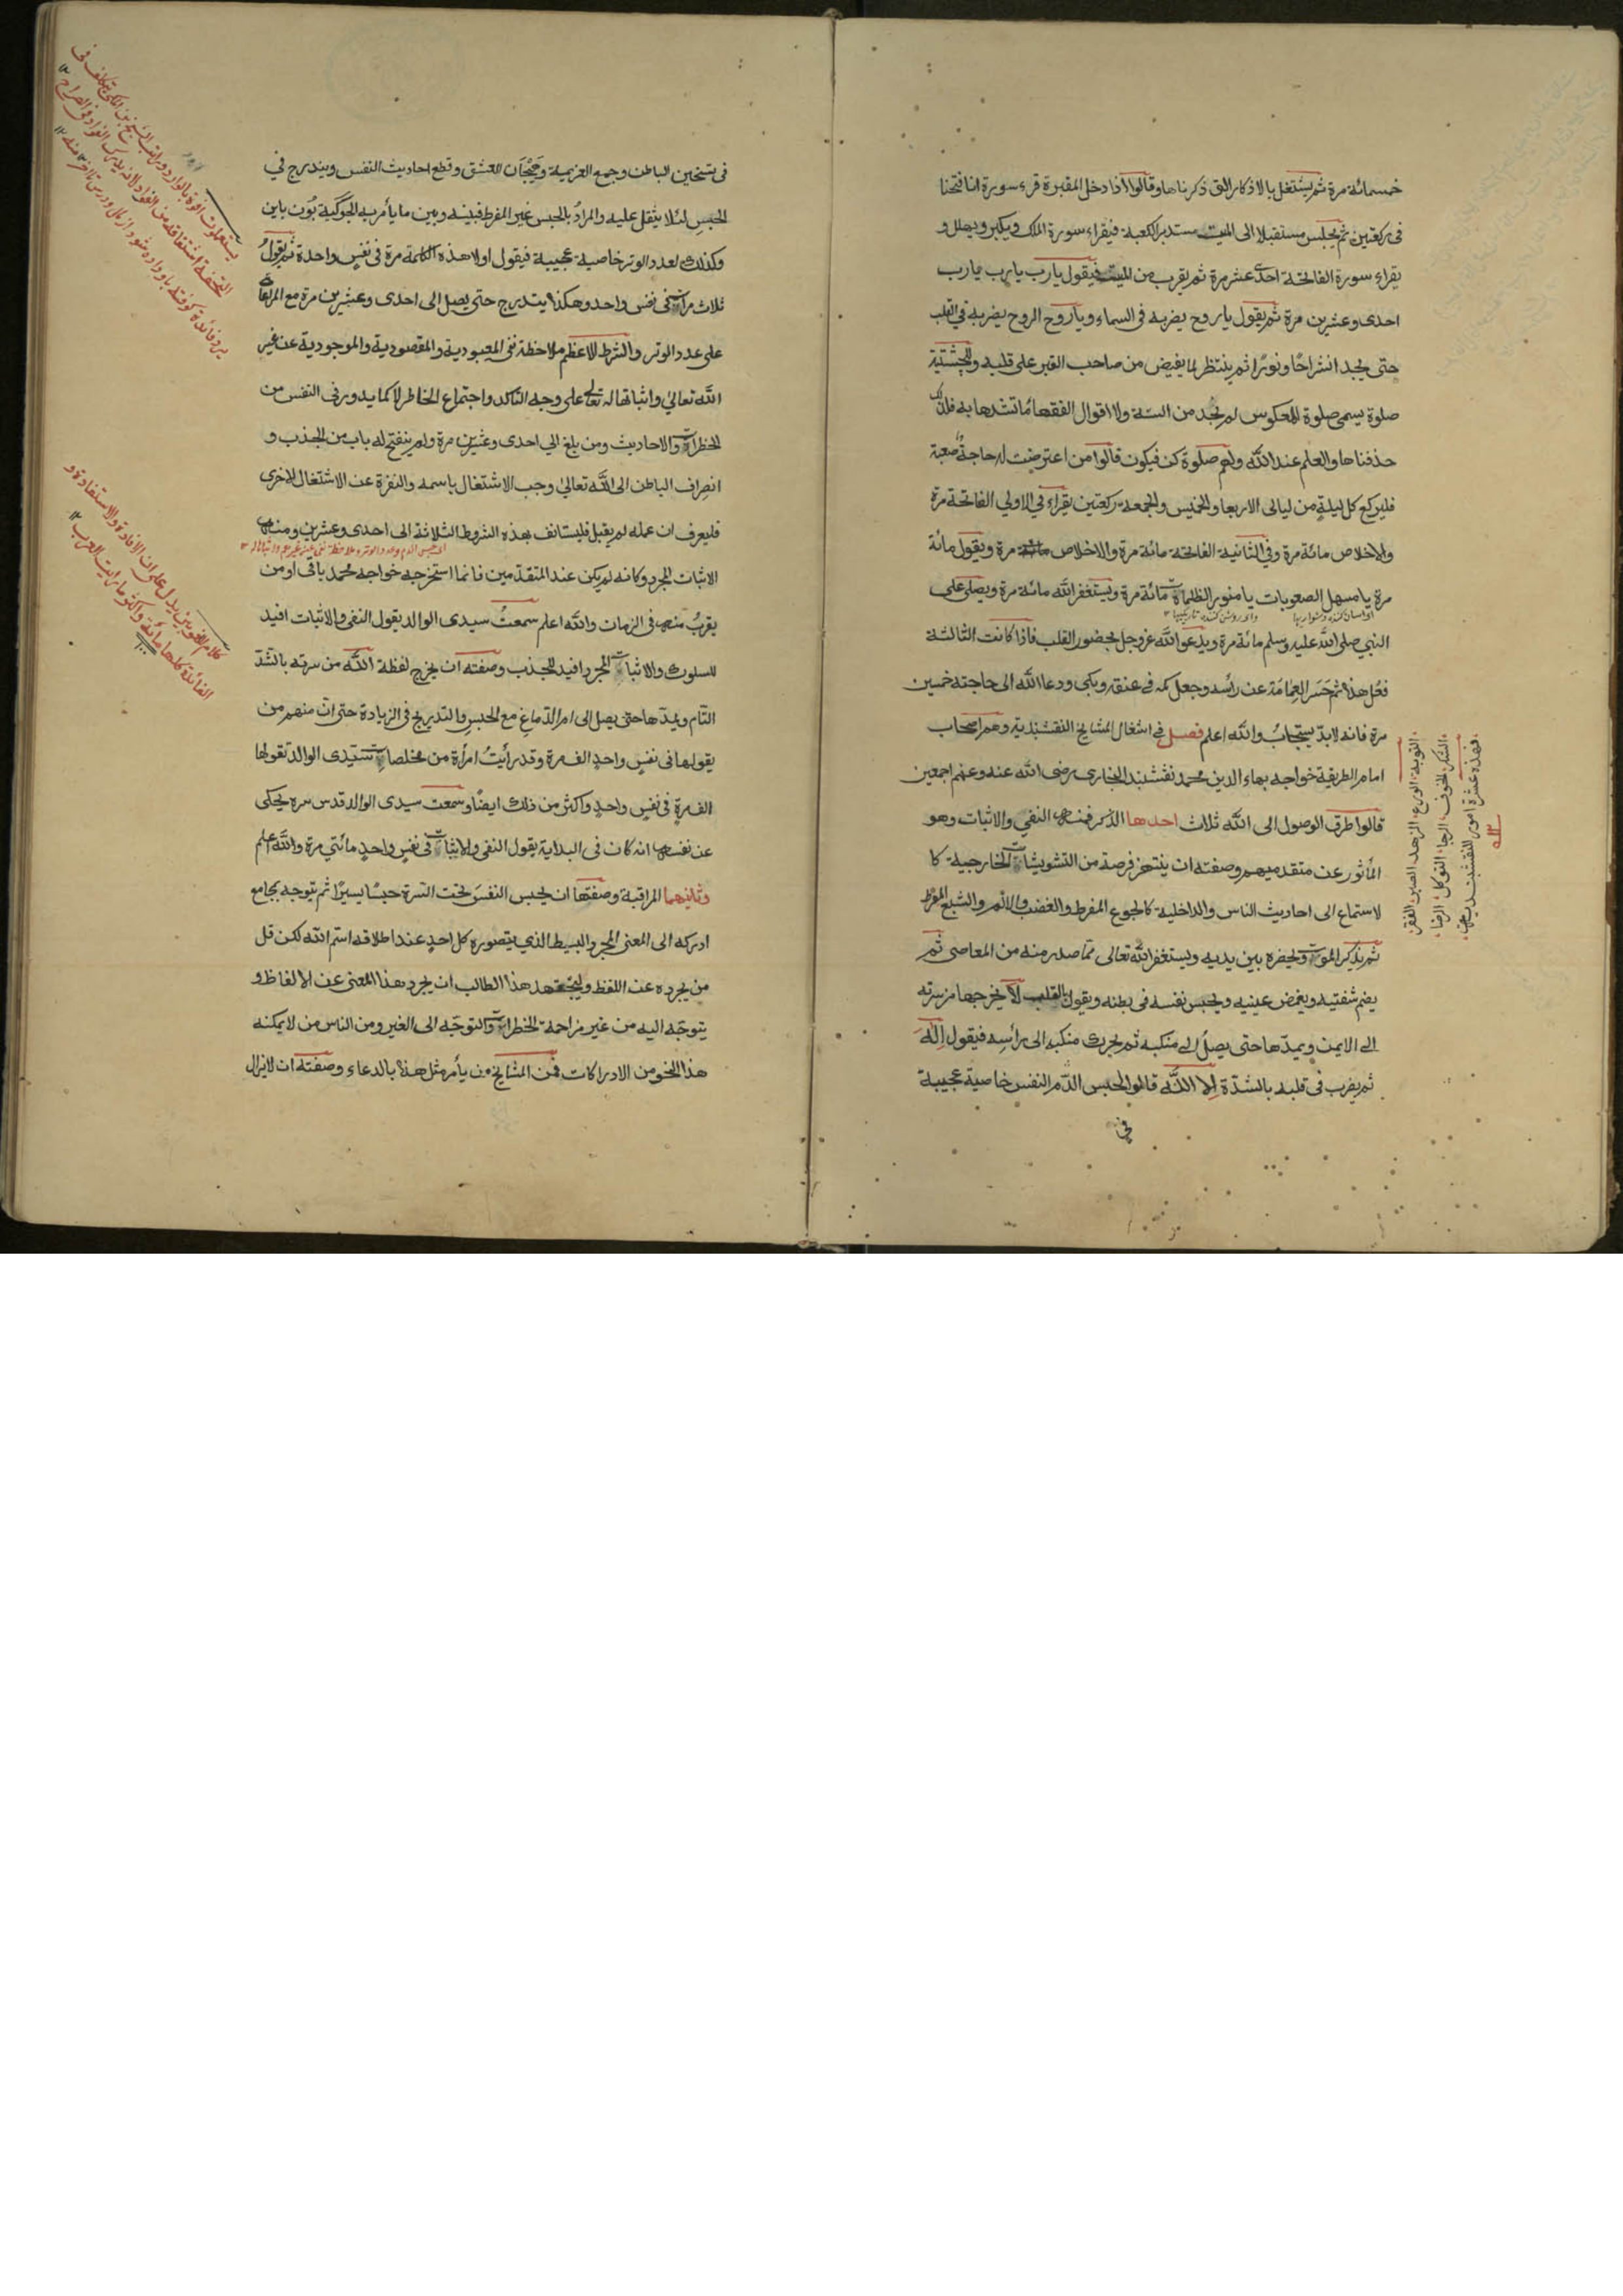 خمسمائة مرة ثم يشتغل بالاذكار التى ذكرناها وقالوا اذا دخل المقبرة قرء سورة انا فتحنا
فى ركعتين ثم يجلس مستقبلا الى الميت مستدبر الكعبة فيقراء سورة الملك ويكبر ويهلل و
يقراء سورة الفاتحة احدى عشر مرة ثم يقرب من الميت فيقول يارب يارب يارب
احدى وعشرين مرة ثم يقول ياروح يضربه فى السماء وياروح الروح يضربه فى القلب
حتى يجد انشراحًا ونورًا ثم ينتظر لما يفيض من صاحب القبر على قلبه وللچشتية
صلوة يسمى صلوة المعكوس لم نجد من السنة ولا اقوال الفقهاء ما نشدها به فلذلك
حذفناها والعلم عند الله ولهم صلوة كن فيكون قالوا من اعترضت له حاجة صعبة
فليركع كل ليلةٍ من ليالى الاربعا والخميس والجمعة ركعتين يقراء فى الاولى الفاتحة مرة
والاخلاص مائة مرة وفى الثانية الفاتحة مائة مرة والاخلاص مرة ويقول مائة
مرة يا مسهل الصعوبات يا منور الظلمات مائة مرة ويستغفر الله مائة مرة ويصلى على
النبى صلى الله عليه وسلم مائة مرة ويدعو الله عزوجل بحضور القلب فاذا كانت الثالثة
فعل هذا ثم حسر العمامة عن رأسه وجعل كمه فى عنقه وبكى ودعا الله الى حاجته خمسين
مرة فانه لابدّ يستجاب والله اعلم فصل فى اشغال المشايخ النقشبندية وهم اصحاب
امام الطريقة خواجه بهاء الدين محمد نقشبند البخارى رضى الله عنه وعنهم اجمعين
قالوا طرق الوصول الى الله ثلاث احدها الذكر فمنها النفى والاثبات وهو
المأثور عن متقدميهم وصفته ان ينتهز فرصة من التشويشات الخارجية كا
لاستماع الى احاديث الناس والداخلية كالجوع المفرط والغضب والالم والشبع المفرط
ثم يذكر الموت ويحضره بين يديه ويستغفر الله تعالى مما صدر منه من المعاصى ثم
يضم شفتيه ويغمض عينيه ويحبس نفسه فى بطنه ويقول بالقلب لا يخرجها من سرته
الى الايمن ويمدّها حتى يصل الى منكبه ثم يحرك منكبه الى رأسه فيقول اله
ثم يضرب فى قلبه بالشدّة الا الله قالوا لحبس الدم النفس خاصية عجيبة
فى
فهذه عشرة امور للنقشبندية
الشكر الخوف الرجا التوكل الرضا
التوبة الورع الزهد الصبر الفقر
فى تسخين الباطن وجمع العزيمة وهيجان العشق وقطع احاديث النفس ويندرج فى
الحبس لئلا يثقل عليه والمراد بالحبس غير المفرط فبينه وبين ما يأمر به الجوكية بون باين
وكذلك لعدد الوتر خاصية عجيبة فيقول اولا هذه الكلمة مرة فى نفس واحدة ثم يقول
ثلاث مرات فى نفس واحد وهكذا يتدرج حتى يصل الى احدى وعشرين مرة مع المراعات
على عدد الوتر والشرط الاعظم ملاحظة نفى المعبودية والمقصودية والموجودية عن غير
الله تعالى واثباتها له تعالى على وجه التاكد واجتماع الخاطر لا كما يدور فى النفس من
الخطرات والاحاديث ومن بلغ الى احدى وعشرين مرة ولم ينفتح له باب من الجذب و
انصراف الباطن الى الله تعالى وجب الاشتغال باسمه والنفرة عن الاشتغال الاخرى
فليعرف ان عمله لم يقبل فليستانف بهذه الشروط الثلاثة الى احدى وعشرين ومنها
الاثبات المجرد وكانه لم يكن عند المتقدمين فانما استخرجه خواجه محمد باقى او من
يقرب منه فى الزمان والله اعلم سمعت سيدى الوالد يقول النفى والاثبات افيد
للسلوك والاثبات المجرد افيد للجذب وصفته ان يخرج لفظة الله من سرته بالشدّ
التام ويمدّها حتى يصل الى ام الدماغ مع الحبس والتدريج فى الزيادة حتى ان منهم من
يقولها فى نفس واحد الف مرة وقد رأيت امرأة من مخلصات سيّدى الوالد تقولها
الف مرة فى نفس واحد واكثر من ذلك ايضًا وسمعت سيدى الوالد قدس سره يحكى
عن نفسه انه كان فى البداية يقول النفى والاثبات فى نفس واحد مائتى مرة والله اعلم
وثانيهما المراقبة وصفتها ان يحبس النفس تحت السرة حبسًا يسيرًا ثم يتوجه بمجامع
ادركه الى المعنى المجرد البسيط الذى يتصوره كل احد عند اطلاقه اسم الله لكن قل
من يجرده عن اللفظ وليجتهد هذا الطالب ان يجرد هذا المعنى عن الالفاظ و
يتوجّه اليه من غير مزاحمة الخطرات والتوجّه الى الغير ومن الناس من لا يمكنه
هذا النحو من الادراكات فمن المشايخ من يأمر مثل هذا بالدعاء وصفته ان لا يزال